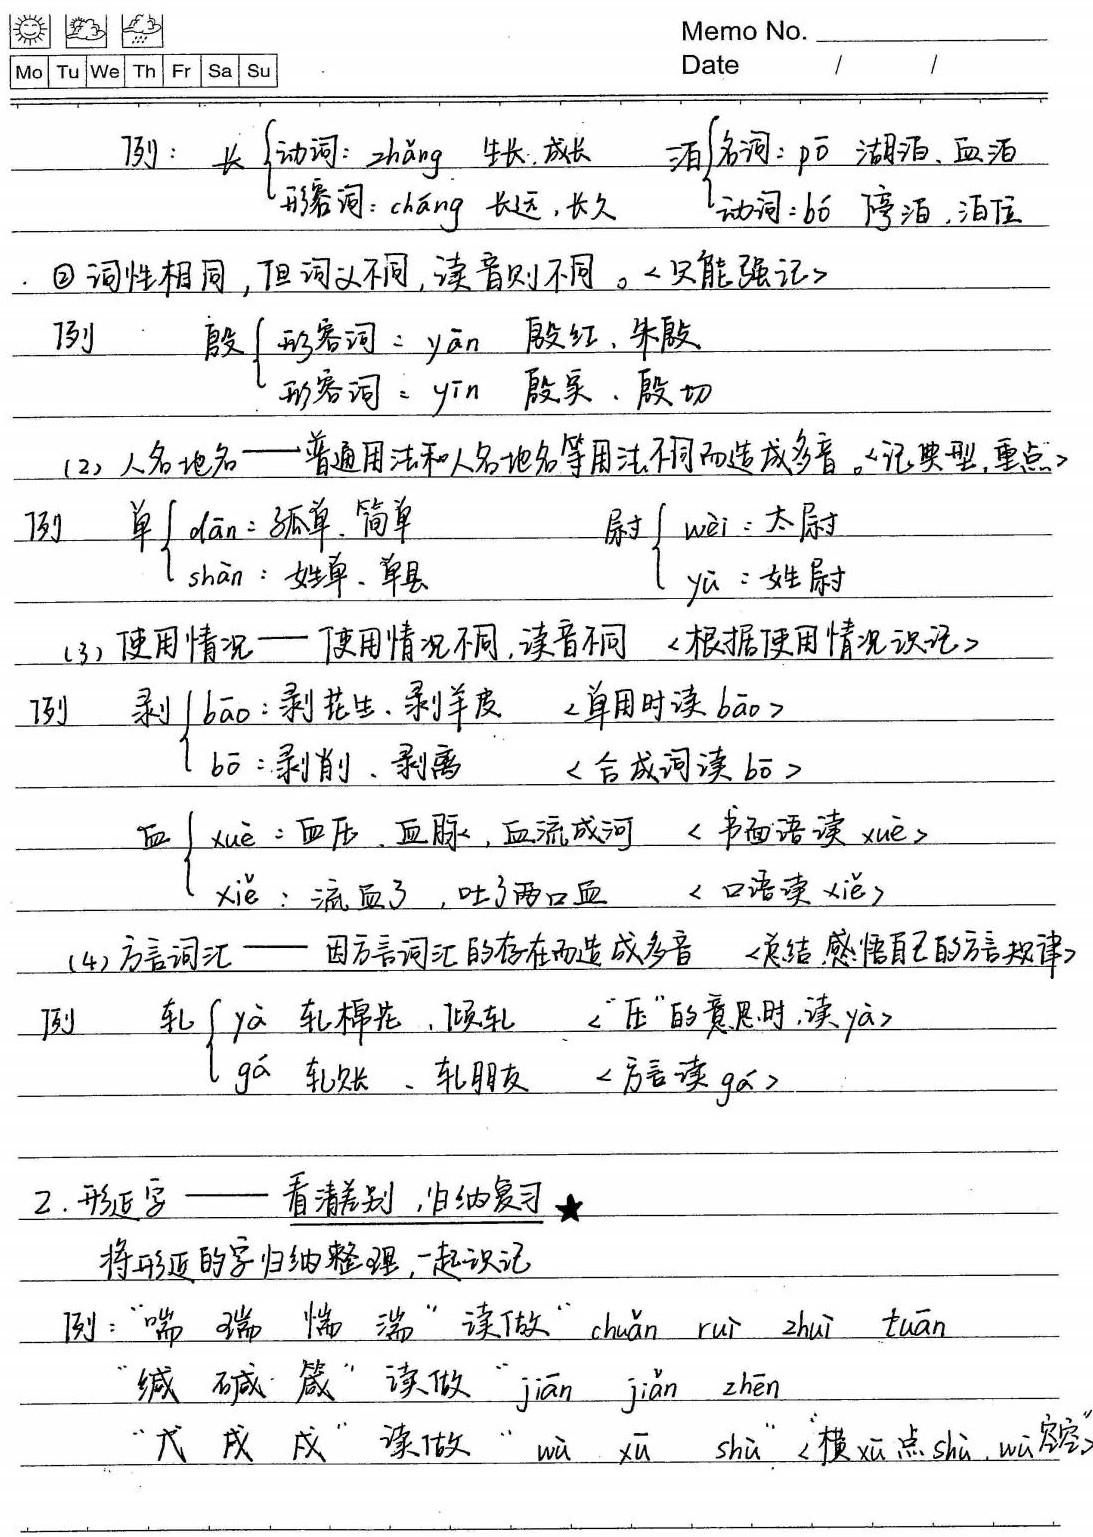 Memo No.
Mo Tu We Th Fr Sa Su
Date / /
例： 长 { 动词：zhǎng 生长、成长 泊 { 名词：pō 湖泊、血泊
形容词：cháng 长远，长久 动词：bó 停泊、泊位
② 词性相同，但词义不同，读音则不同。<只能强记>
例 殷 { 形容词：yān 殷红、朱殷
形容词：yīn 殷实、殷切
(2) 人名地名——普通用法和人名地名等用法不同而造成多音。<记典型,重点>
例 单 { dān：孤单、简单 尉 { wèi：太尉
shàn：姓单、单县 yù：姓尉
(3) 使用情况——使用情况不同，读音不同 <根据使用情况识记>
例 剥 { bāo：剥花生、剥羊皮 <单用时读bāo>
bō：剥削、剥离 <合成词读bō>
血 { xuè：血压、血脉，血流成河 <书面语读xuè>
xiě：流血了，吐了两口血 <口语读xiě>
(4) 方言词汇——因方言词汇的存在而造成多音 <总结、感悟自己的方言规律>
例 轧 { yà 轧棉花、倾轧 <“压”的意思时,读yà>
gá 轧账、轧朋友 <方言读gá>
2. 形近字——看清差别，归纳复习★
将形近的字归纳整理，一起识记
例：“喘 瑞 惴 湍”读做“chuǎn ruì zhuì tuān
“缄 碱 箴”读做“jiān jiǎn zhēn
“戊 戌 戍”读做“wù xū shù”<“横xū点shù，wù空空”>